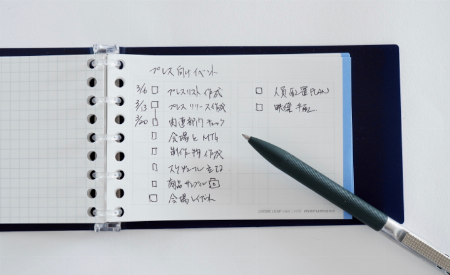 プレス向けイベント
3/6 □ プレスリスト作成
3/13 □ プレスリリース作成
3/20 □ 関連部門チェック
□ 会場とMTG
□ 制作物作成
□
□ 商品サンプル
□ 会場レイアウト
□ 人員配置PLAN
□ 映像手配